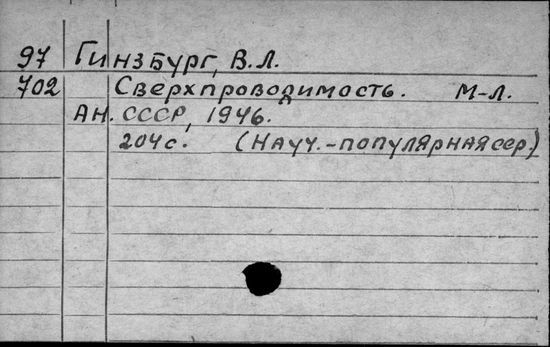 97 Гинзбург, В.Л.
702 Сверхпроводимость. М-Л.
АН. СССР, 1946.
204 с. (Науч.-популярная сер.)